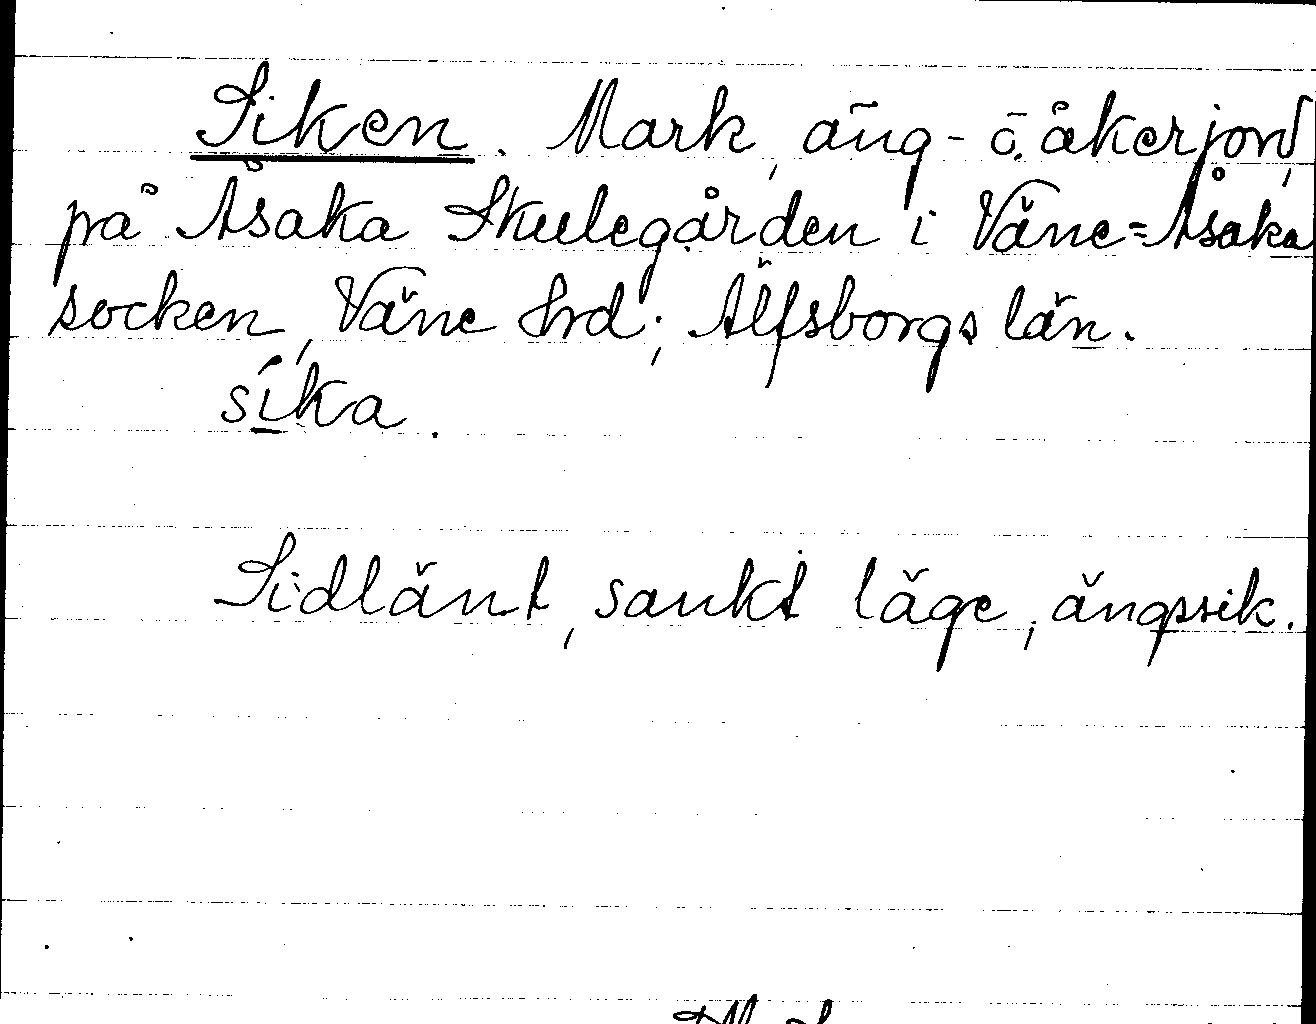 Siken. Mark, äng- ö. åkerjord,
på Åsaka Skulegården i Väne=Åsaka
socken, Väne Hrd; Älfsborgs län.
síka.
Sidlänt, sankt läge, ängssik.